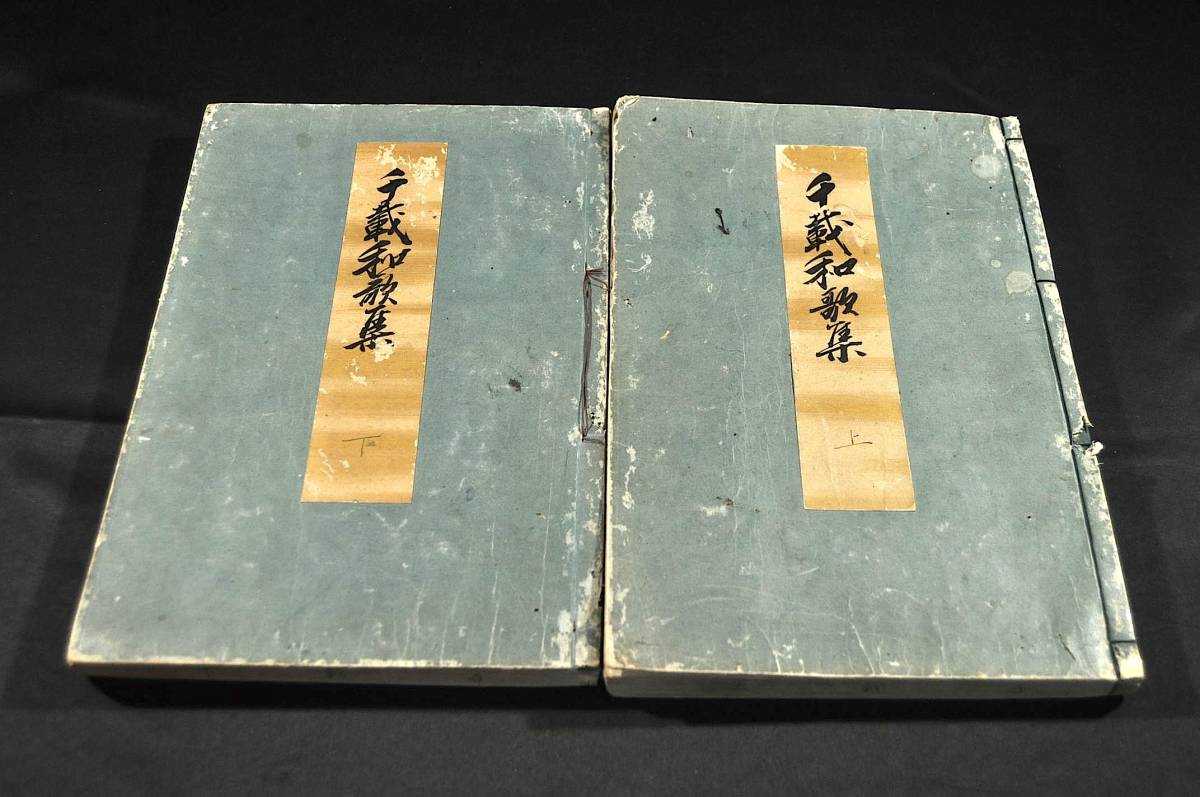 千載和歌集
上
千載和歌集
下